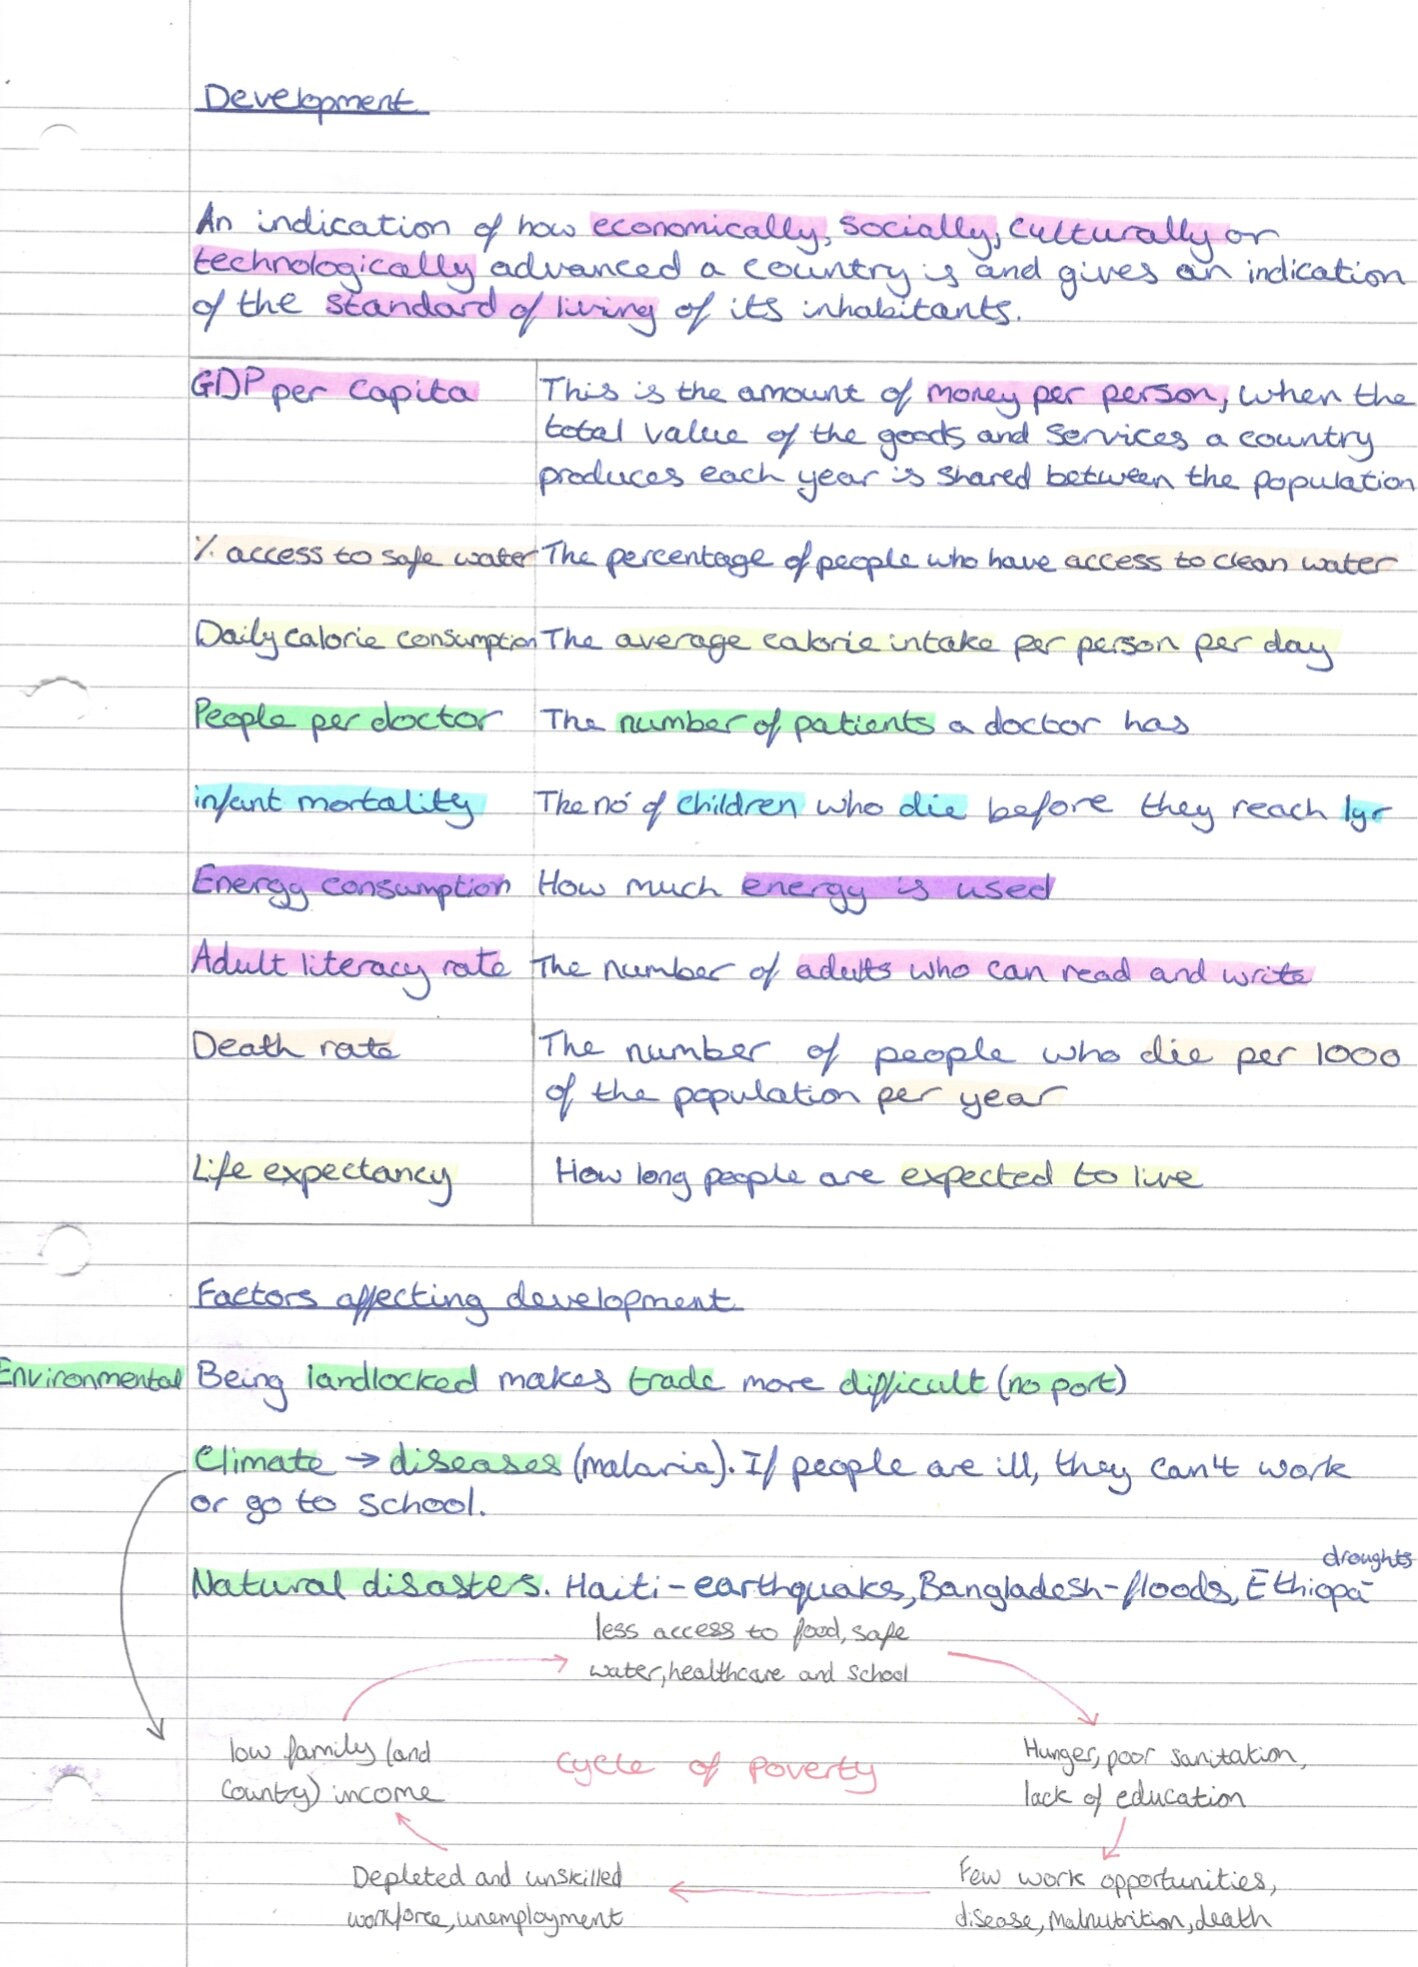 Development
An indication of how economically, socially, culturally or
technologically advanced a country is and gives an indication
of the standard of living of its inhabitants.
GDP per capita This is the amount of money per person, when the
total value of the goods and services a country
produces each year is shared between the population
% access to safe water The percentage of people who have access to clean water
Daily calorie consumption The average calorie intake per person per day
People per doctor The number of patients a doctor has
infant mortality The no' of children who die before they reach 1yr
Energy consumption How much energy is used
Adult literacy rate The number of adults who can read and write
Death rate The number of people who die per 1000
of the population per year
Life expectancy How long people are expected to live
Factors affecting development
Environmental Being landlocked makes trade more difficult (no port)
Climate → diseases (malaria). If people are ill, they can't work
or go to school.
droughts
Natural disasters. Haiti - earthquakes, Bangladesh - floods, Ethiopa -
less access to food, safe
water, healthcare and school
low family (and
country) income
cycle of poverty
Hunger, poor sanitation,
lack of education
Depleted and unskilled
workforce, unemployment
Few work opportunities,
disease, malnutrition, death